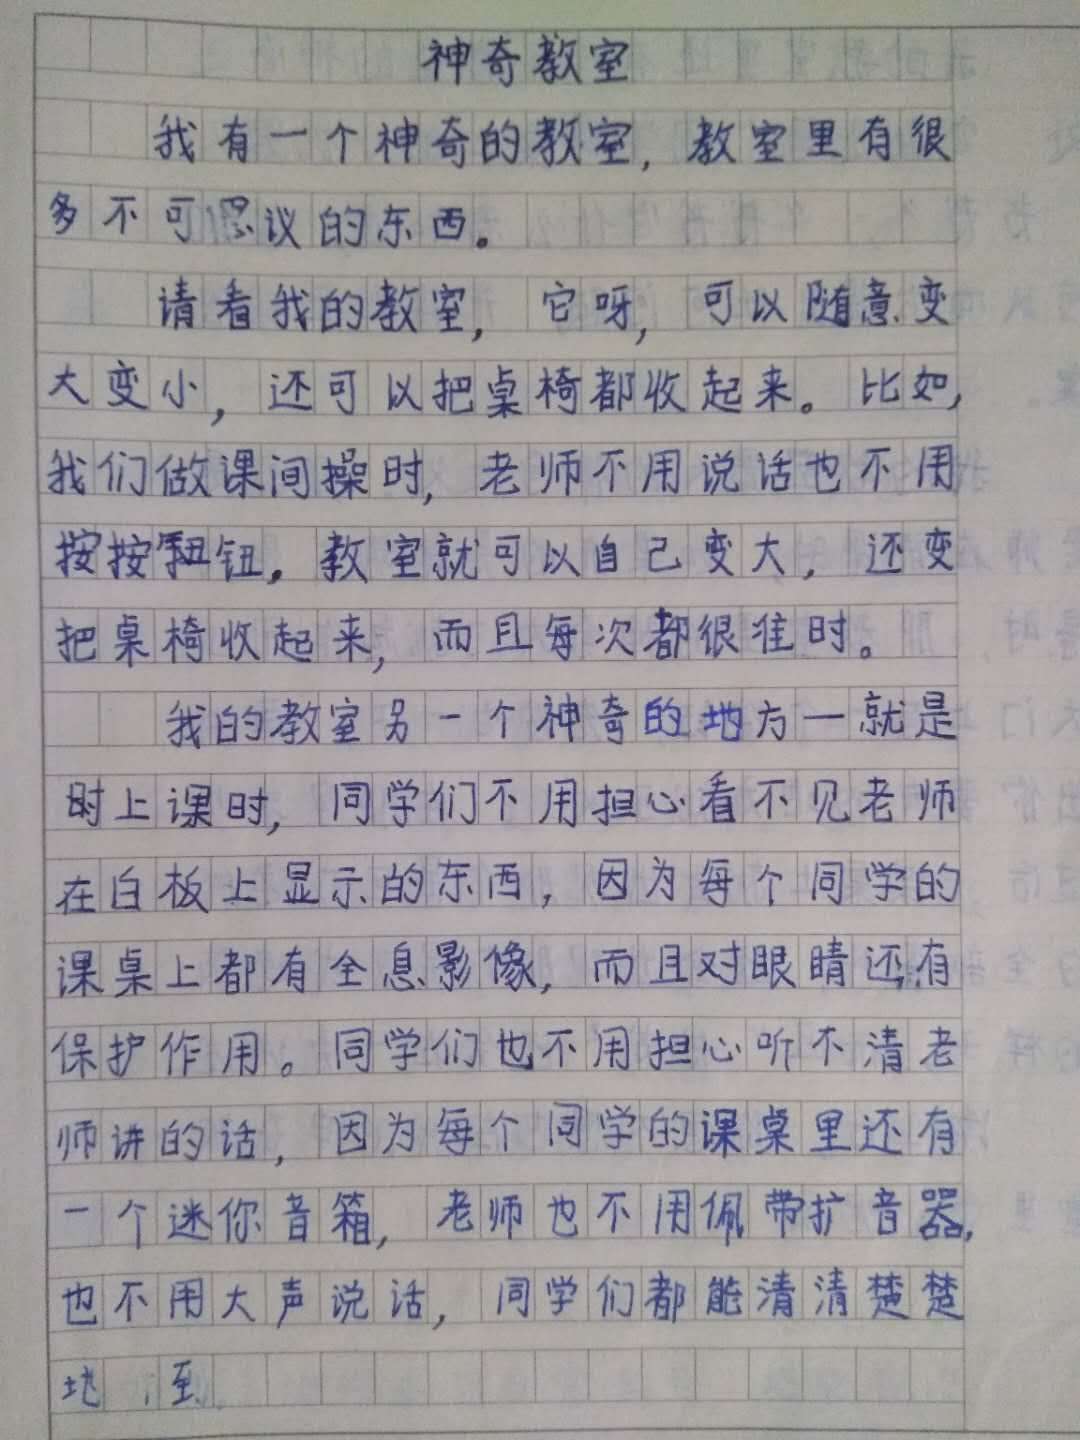 神奇教室
我有一个神奇的教室，教室里有很
多不可思议的东西。
请看我的教室，它呀，可以随意变
大变小，还可以把桌椅都收起来。比如，
我们做课间操时，老师不用说话也不用
按按钮，教室就可以自己变大，还变
把桌椅收起来，而且每次都很准时。
我的教室另一个神奇的地方一就是
时上课时，同学们不用担心看不见老师
在白板上显示的东西，因为每个同学的
课桌上都有全息影像，而且对眼睛还有
保护作用。同学们也不用担心听不清老
师讲的话，因为每个同学的课桌里还有
一个迷你音箱，老师也不用佩带扩音器，
也不用大声说话，同学们都能清清楚楚
地 到